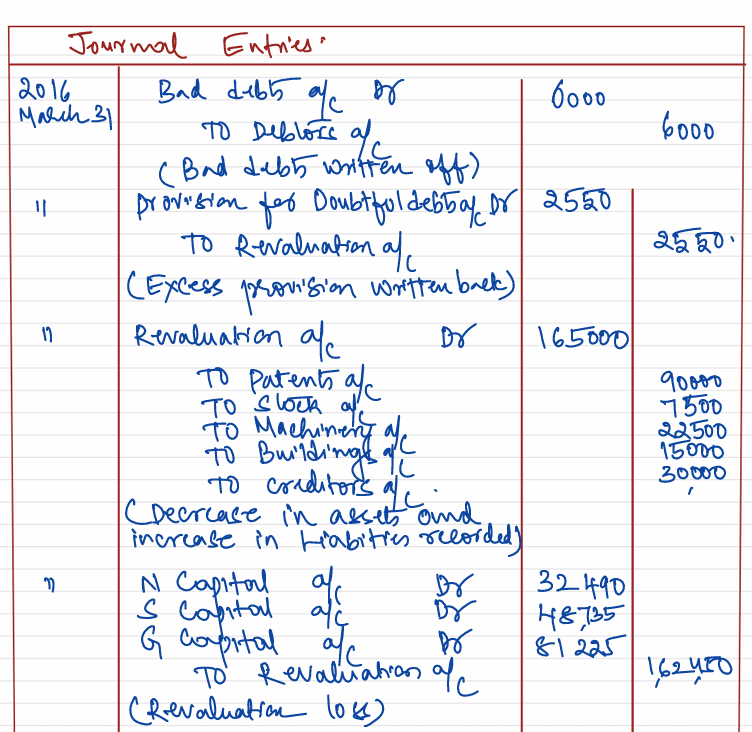 Journal Entries:
2016 Bad debts a/c Dr 6000
March 31 To Debtors a/c 6000
(Bad debts written off)
" Provision for Doubtful debts a/c Dr 2550
To Revaluation a/c 2550.
(Excess provision written back)
" Revaluation a/c Dr 165000
To Patents a/c 90000
To Stock a/c 7500
To Machinery a/c 22500
To Buildings a/c 15000
To creditors a/c. 30000
(Decrease in assets and
increase in Liabities recorded)
" N Capital a/c Dr 32490
S Capital a/c Dr 48,735
G Capital a/c Dr 81225
To Revaluation a/c 1,62,450
(Revaluation loss)